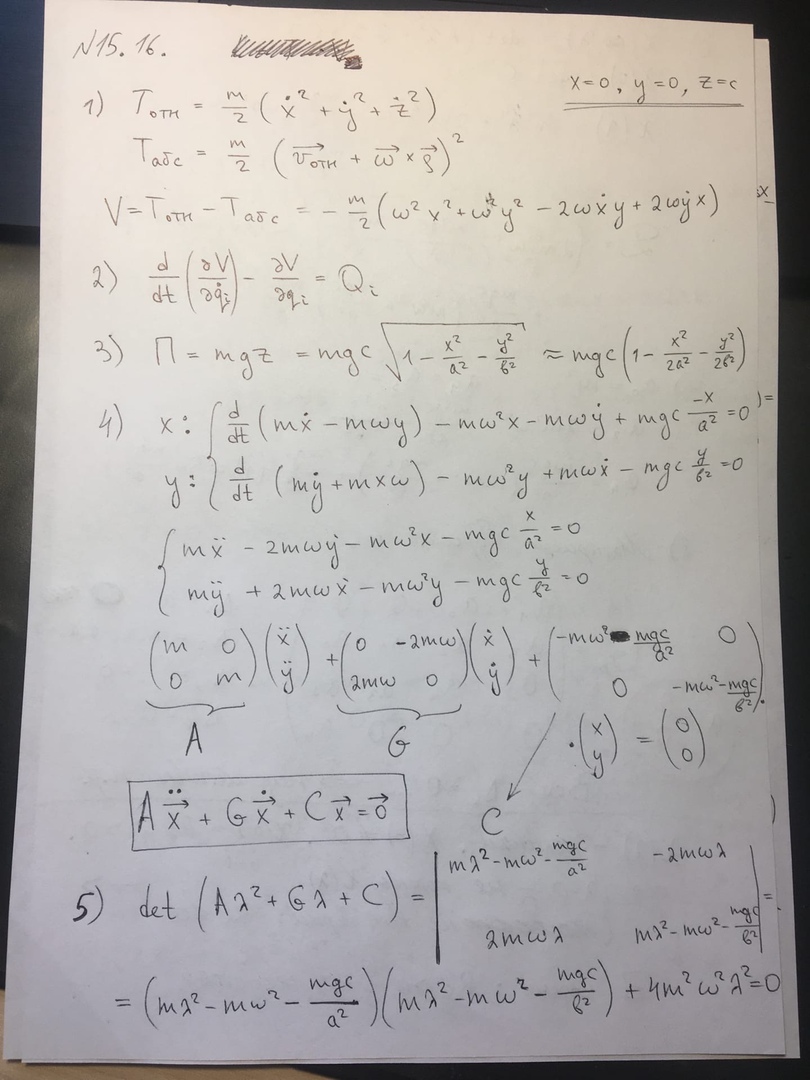 N15.16.
x=0, y=0, z=c
1) Tотн = m/2 (ẋ² + ẏ² + ż²)
Tабс = m/2 (v⃗отн + ω⃗ × ρ⃗)²
V = Tотн − Tабс = − m/2 (ω²x² + ω²y² − 2ωẋy + 2ωẏx)
2) d/dt (∂V/∂q̇i) − ∂V/∂qi = Qi
3) П = mgz = mgc √(1 − x²/a² − y²/в²) ≈ mgc (1 − x²/2a² − y²/2в²)
4) x: { d/dt (mẋ − mωy) − mω²x − mωẏ + mgc −x/a² = 0
y: { d/dt (mẏ + mxω) − mω²y + mωẋ − mgc y/в² = 0
{ mẍ − 2mωẏ − mω²x − mgc x/a² = 0
mÿ + 2mωẋ − mω²y − mgc y/в² = 0
(m 0; 0 m)(ẍ; ÿ) + (0 −2mω; 2mω 0)(ẋ; ẏ) + (−mω² − mgc/a² 0; 0 −mω² − mgc/в²)·
A G ·(x; y) = (0; 0)
Aẍ⃗ + Gẋ⃗ + Cx⃗ = 0⃗ C
5) det (Aλ² + Gλ + C) = |mλ² − mω² − mgc/a² −2mωλ; 2mωλ mλ² − mω² − mgc/в²| =
= (mλ² − mω² − mgc/a²)(mλ² − mω² − mgc/в²) + 4m²ω²λ² = 0